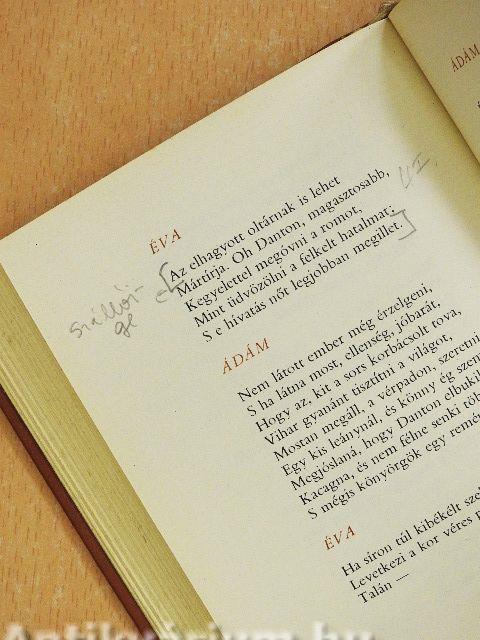 ÉVA
Az elhagyott oltárnak is lehet
Mártírja. Oh Danton, magasztosabb,
Kegyelettel megóvni a romot,
Mint üdvözölni a felkelt hatalmat;
S e hivatás nőt legjobban megillet.
Szállói-
ge
ÁDÁM
Nem látott ember még érzelgeni,
S ha látna most, ellenség, jóbarát,
Hogy az, kit a sors korbácsolt tova,
Vihar gyanánt tisztítni a világot,
Mostan megáll, a vérpadon, szeretni
Egy kis leánynál, és könny ég szem
Megjóslaná, hogy Danton elbukil
Kacagna, és nem félne senki töb
S mégis könyörgök egy remé
ÉVA
Ha síron túl kibékélt sze
Levetkezi a kor véres
Talán —
ÁDÁM
Antikvárium.hu